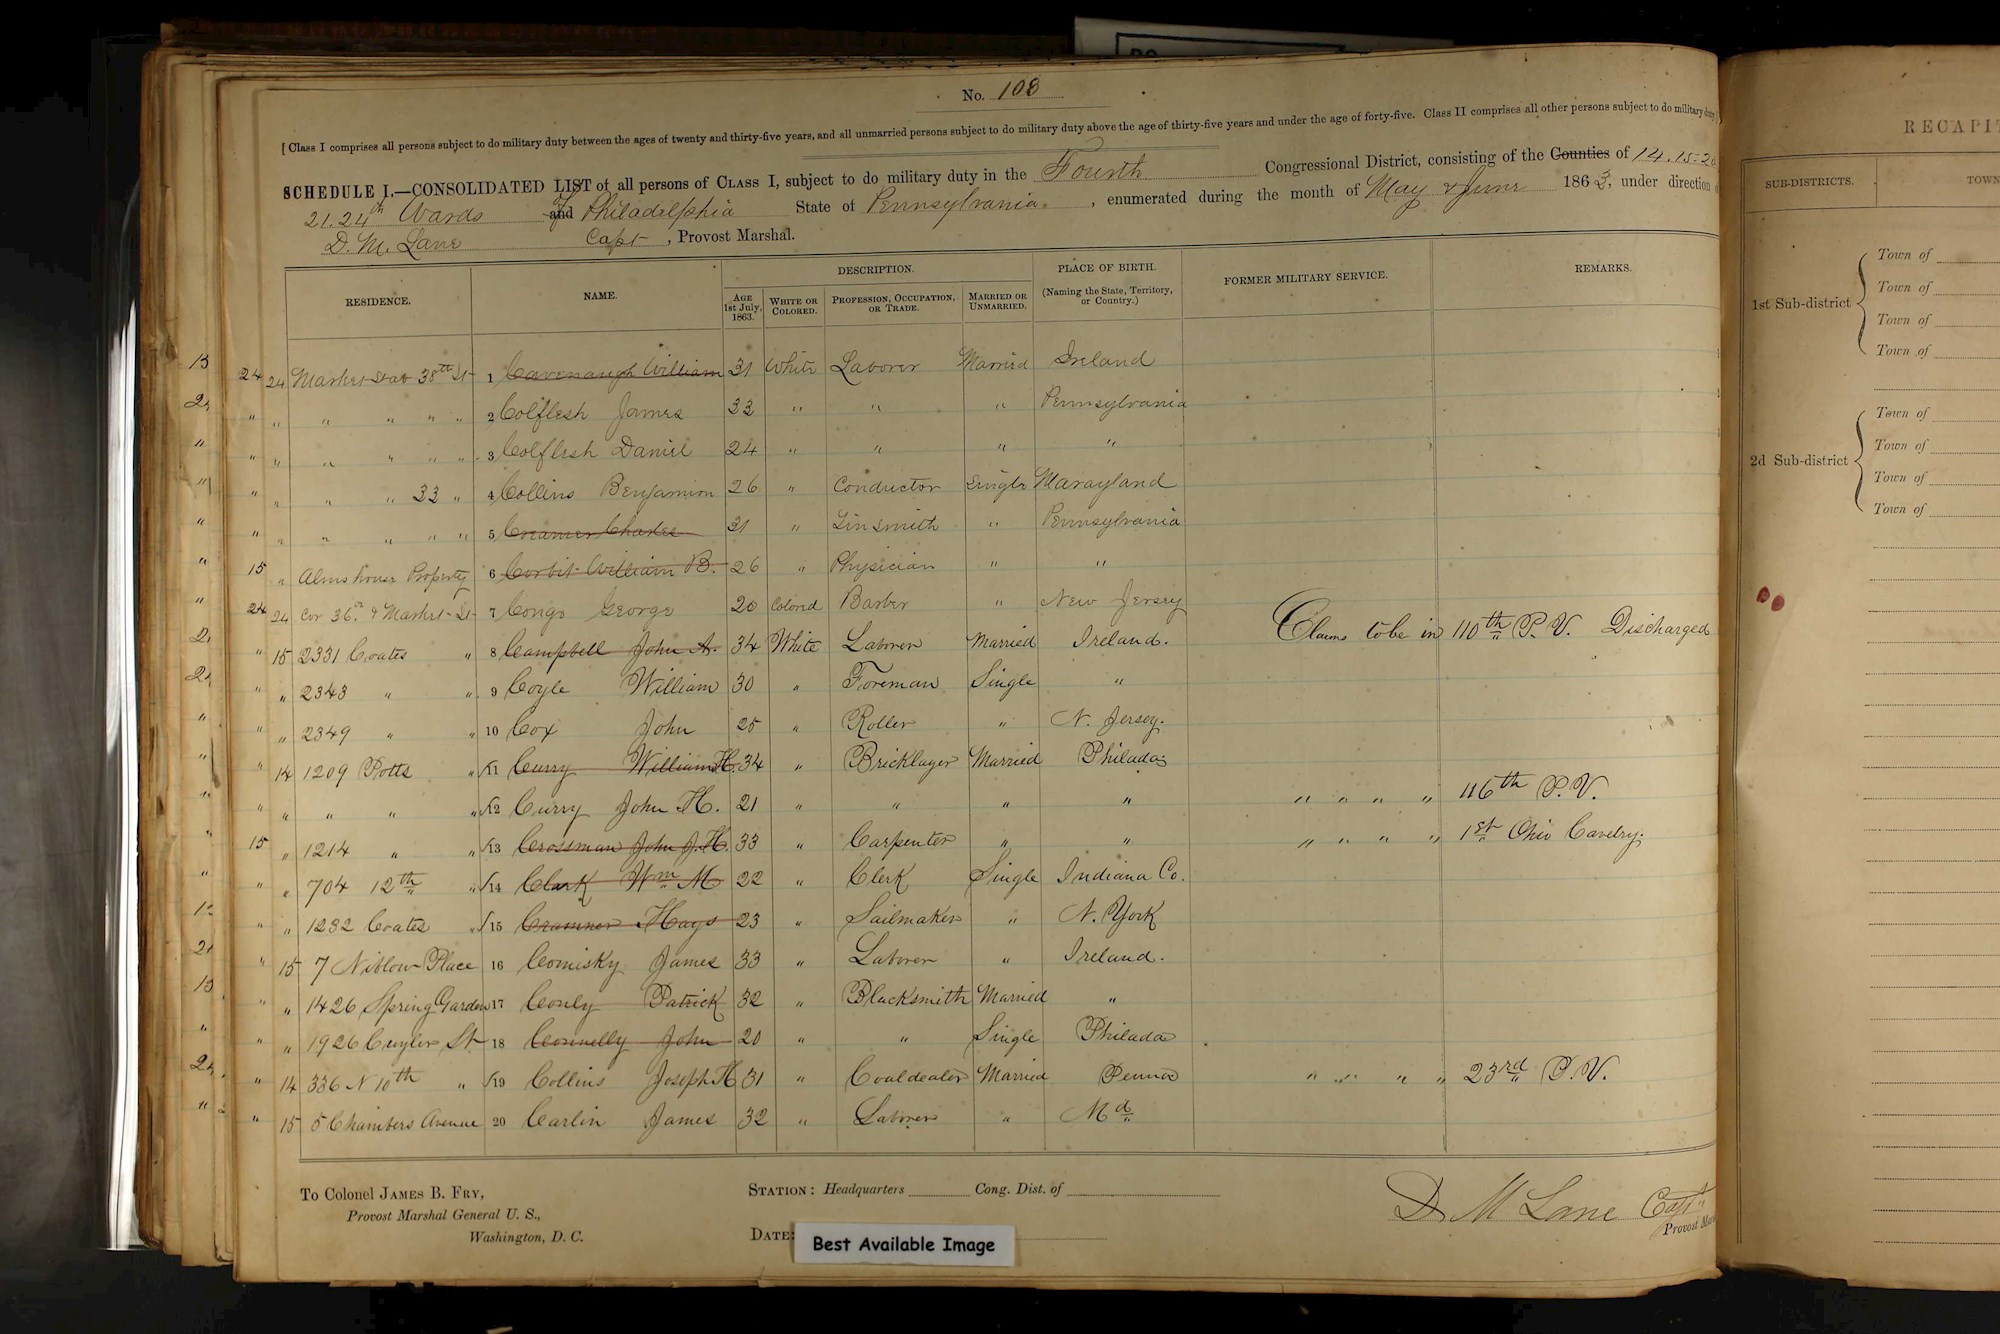 No. 108
[Class I comprises all persons subject to do military duty between the ages of twenty and thirty-five years, and all unmarried persons subject to do military duty above the age of thirty-five years and under the age of forty-five. Class II comprises all other persons subject to do military duty
SCHEDULE I.—CONSOLIDATED LIST of all persons of CLASS I, subject to do military duty in the Fourth Congressional District, consisting of the Counties of 14. 15. 20
21. 24th Wards and of Philadelphia State of Pennsylvania, enumerated during the month of May & June 1863, under direction
D. M. Lane Capt, Provost Marshal.
RESIDENCE. NAME. DESCRIPTION. PLACE OF BIRTH. (Naming the State, Territory, or Country.) FORMER MILITARY SERVICE. REMARKS.
AGE 1st July, 1863. WHITE OR COLORED. PROFESSION, OCCUPATION, OR TRADE. MARRIED OR UNMARRIED.
24 24 Market 38th St 1 Cavenaugh William 31 White Laborer Married Ireland
" " " " " " 2 Colflesh James 33 " " " Pennsylvania
" " " " " " 3 Colflesh Daniel 24 " " " "
" " " " 33 " 4 Collins Benjamin 26 " Conductor Single Marayland
" " " " " " 5 Creamer Charles 31 " Tinsmith " Pennsylvania
15 " Alms house Property 6 Corbit William B. 26 " Physician " "
24 24 Cor 36th & Market St 7 Congo George 20 Colored Barber " New Jersey
" 15 2331 Coates " 8 Campbell John A. 34 White Laborer Married Ireland. Claims to be in 110th P. V. Discharged
" " 2343 " " 9 Coyle William 30 " Foreman Single "
" " 2349 " " 10 Cox John 25 " Roller " N. Jersey.
" 14 1209 Potts " 11 Curry William H. 34 " Bricklayer Married Philada
" " " " " 12 Curry John H. 21 " " " " " " " " 116th P. V.
15 " 1214 " " 13 Crossman John J. H. 33 " Carpenter " " " " " " 1st Ohio Cavelry.
" " 704 12th " 14 Clark Wm M 22 " Clerk Single Indiana Co.
" " 1232 Coates " 15 Cramner Hays 23 " Sailmaker " N. York
" 15 7 Niblow Place 16 Comisky James 33 " Laborer " Ireland.
" " 1426 Spring Garden 17 Conly Patrick 32 " Blacksmith Married "
" " 1926 Cuyler St 18 Connelly John 20 " " Single Philada
" 14 336 N 10th " 19 Collins Joseph H 31 " Coaldealer Married Penna " " " " 23rd P. V.
" 15 5 Chambers Avenue 20 Carlin James 32 " Laborer " Md
To Colonel JAMES B. FRY,
Provost Marshal General U. S.,
Washington, D. C.
STATION: Headquarters Cong. Dist. of
DATE:
D M Lane Capt
Provost
Best Available Image
RECAPIT
SUB-DISTRICTS. TOWN
1st Sub-district
Town of
Town of
Town of
Town of
2d Sub-district
Town of
Town of
Town of
Town of